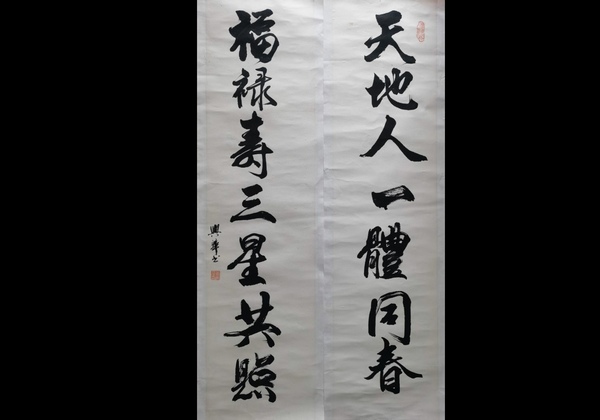 天地人一體同春
福禄寿三星共照
興華书